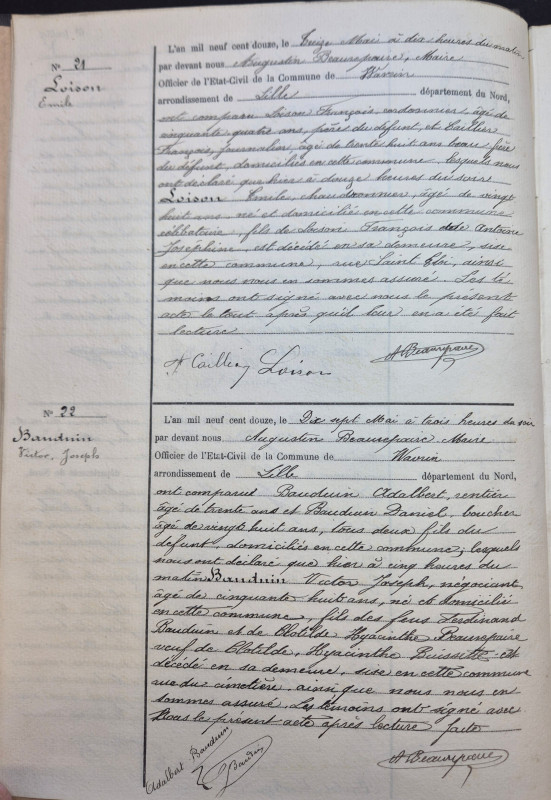 N° 21
Loison
Emile
L'an mil neuf cent douze, le Treize Mai à dix heures du matin
par devant nous Augustin Beaurepaire, Maire
Officier de l'Etat-Civil de la Commune de Wavrin
arrondissement de Lille département du Nord,
ont comparu Loison François, cordonnier âgé de
cinquante quatre ans, père du défunt, et Caillier
François, journalier, âgé de trente huit ans beau frère
du défunt, domiciliés en cette commune, lesquels nous
ont déclaré que hier à douze heures du
Loison Emile, chaudronnier, âgé de vingt
huit ans, né et domicilié en cette commune
célibataire, fils de Loison François et de Antoine
Joséphine, est décédé en sa demeure, sise
en cette commune, rue Saint Eloi, ainsi
que nous nous en sommes assuré. Les té
moins ont signé avec nous le présent
acte le tout après qu'il leur en a été fait
lecture
Loison
A Beaurepaire
N° 22
Bauduin
Victor, Joseph
L'an mil neuf cent douze, le Dix sept Mai à trois heures du soir
par devant nous Augustin Beaurepaire Maire
Officier de l'Etat-Civil de la Commune de Wavrin
arrondissement de Lille département du Nord,
ont comparu Bauduin Adalbert, rentier
âgé de trente ans et Bauduin Daniel, boucher
âgé de vingt huit ans, tous deux fils du
défunt, domiciliés en cette commune; lesquels
nous ont déclaré que hier à cinq heures du
matin Bauduin Victor Joseph, négociant,
âgé de cinquante huit ans, né et domicilié
en cette commune, fils des feus Ferdinand
Bauduin et de Clotilde Hyacinthe Beaurepaire
veuf de Clotilde, Hyacinthe Buissette est
décédé en sa demeure, sise en cette commune
rue du cimetière, ainsi que nous nous en
sommes assuré. Les témoins ont signé avec
Nous le présent acte après lecture faite
Adalbert Bauduin
Bauduin
A Beaurepaire